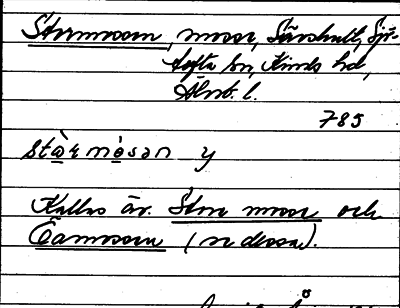 Stormossen, mosse, Sävshult, Sjö-
tofta sn, Kinds hd,
Älvsb. l.
785
stòrmòsən y
Kallas äv. Store mosse och
Eamossen (se dessa).